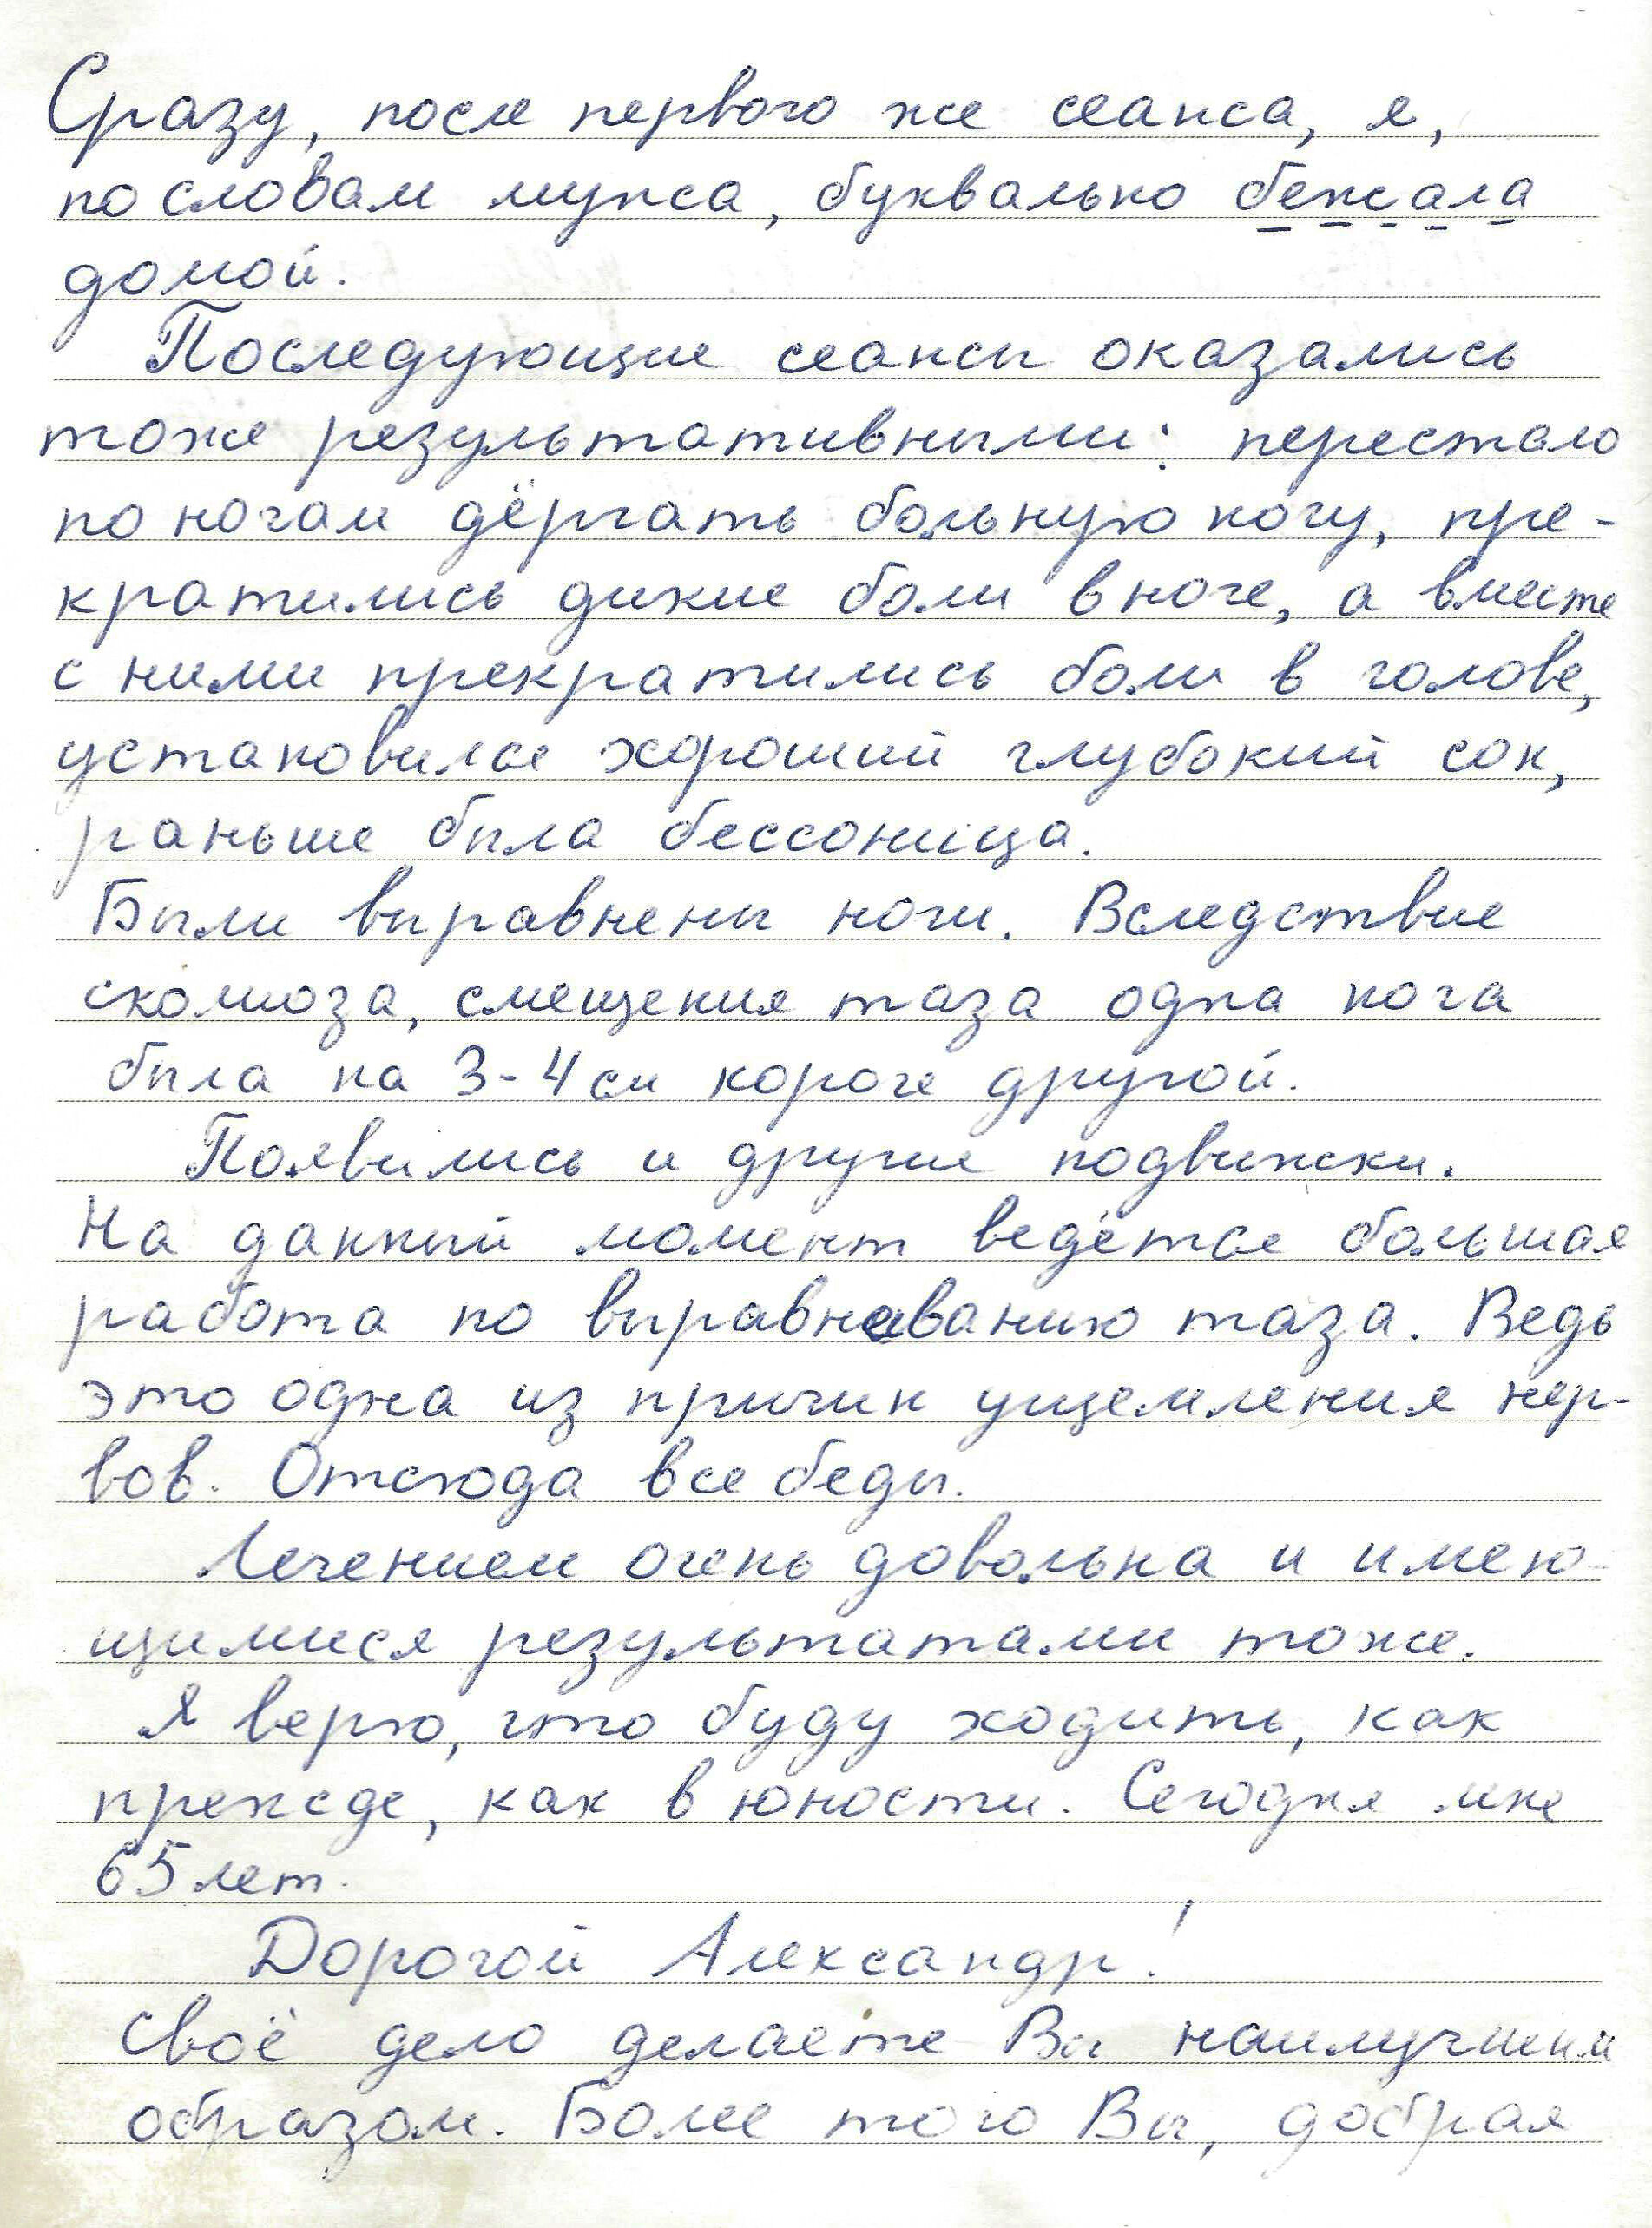 Сразу, после первого же сеанса, я,
по словам мужа, буквально бежала
домой.
Последующие сеансы оказались
тоже результативными: перестало
по ночам дёргать больную ногу, пре-
кратились дикие боли в ноге, а вместе
с ними прекратились боли в голове,
установился хороший глубокий сон,
раньше была бессоница.
Были выравнены ноги. Вследствие
сколиоза, смещения таза одна нога
была на 3-4 см короче другой.
Появились и другие подвижки.
На данный момент ведётся большая
работа по выравниванию таза. Ведь
это одна из причин ущемления нер-
вов. Отсюда все беды.
Лечением очень довольна и имею-
щимися результатами тоже.
Я верю, что буду ходить, как
прежде, как в юности. Сегодня мне
65 лет.
Дорогой Александр!
Своё дело делаете Вы наилучшим
образом. Более того Вы, добрая